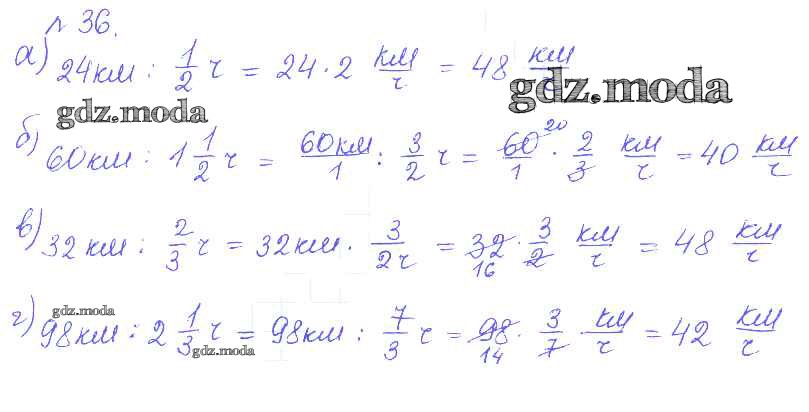 № 36.
а) 24км : 1/2 ч = 24·2 км/ч = 48 км/ч
gdz.moda
gdz.moda
б) 60км : 1 1/2 ч = 60км/1 : 3/2 ч = 60/1 20 · 2/3 км/ч = 40 км/ч
в) 32 км : 2/3 ч = 32км · 3/2ч = 32 16 · 3/2 км/ч = 48 км/ч
gdz.moda
г) 98км : 2 1/3 ч = 98км : 7/3 ч = 98 14 · 3/7 км/ч = 42 км/ч
gdz.moda